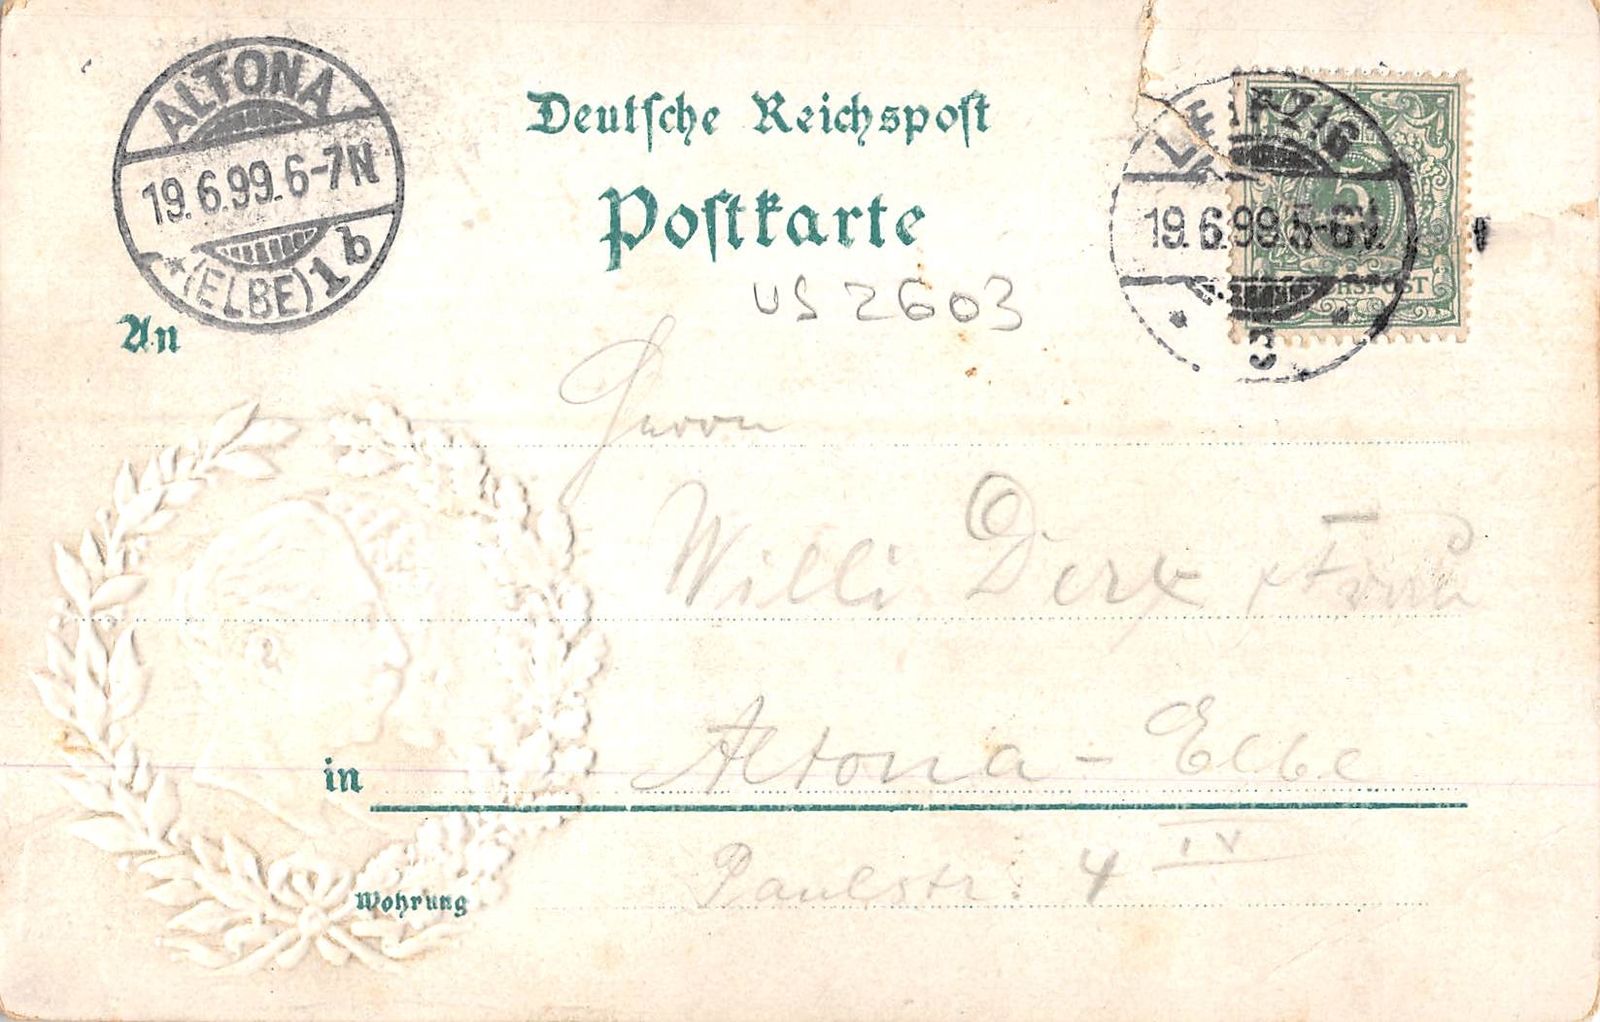 ALTONA
19.6.99.6-7N
*(ELBE)1b
Deutsche Reichspost
Postkarte
LEIPZIG
19.6.99.5-6V.
* 3 *
5
REICHSPOST
US 2603
An
Herrn
Willi Derx & Frau
in
Altona - Elbe
Wohnung
Paulstr. 4 IV